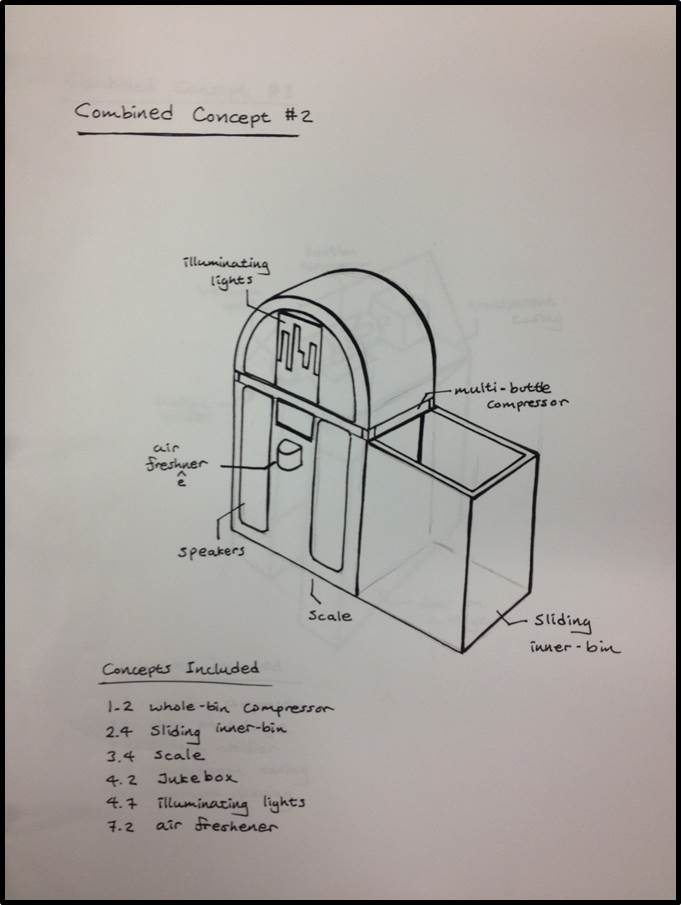 Combined Concept #2
illuminating
lights
multi-buttle
compressor
air
freshner
e
speakers
scale
sliding
inner-bin
Concepts Included
1.2 whole-bin compressor
2.4 sliding inner-bin
3.4 scale
4.2 Jukebox
4.7 illuminating lights
7.2 air freshener